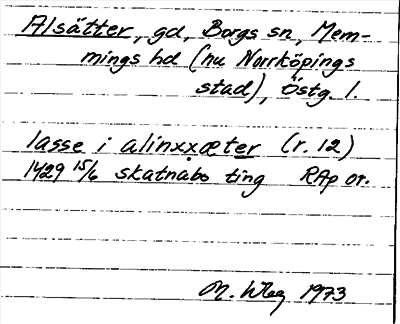 Alsätter, gd, Borgs sn, Mem-
mings hd (nu Norrköpings
stad), Östg. l.
lasse i alinxxæter (r. 12)
1429 15/6 skatnabo ting RAp or.
M. Wbg 1973